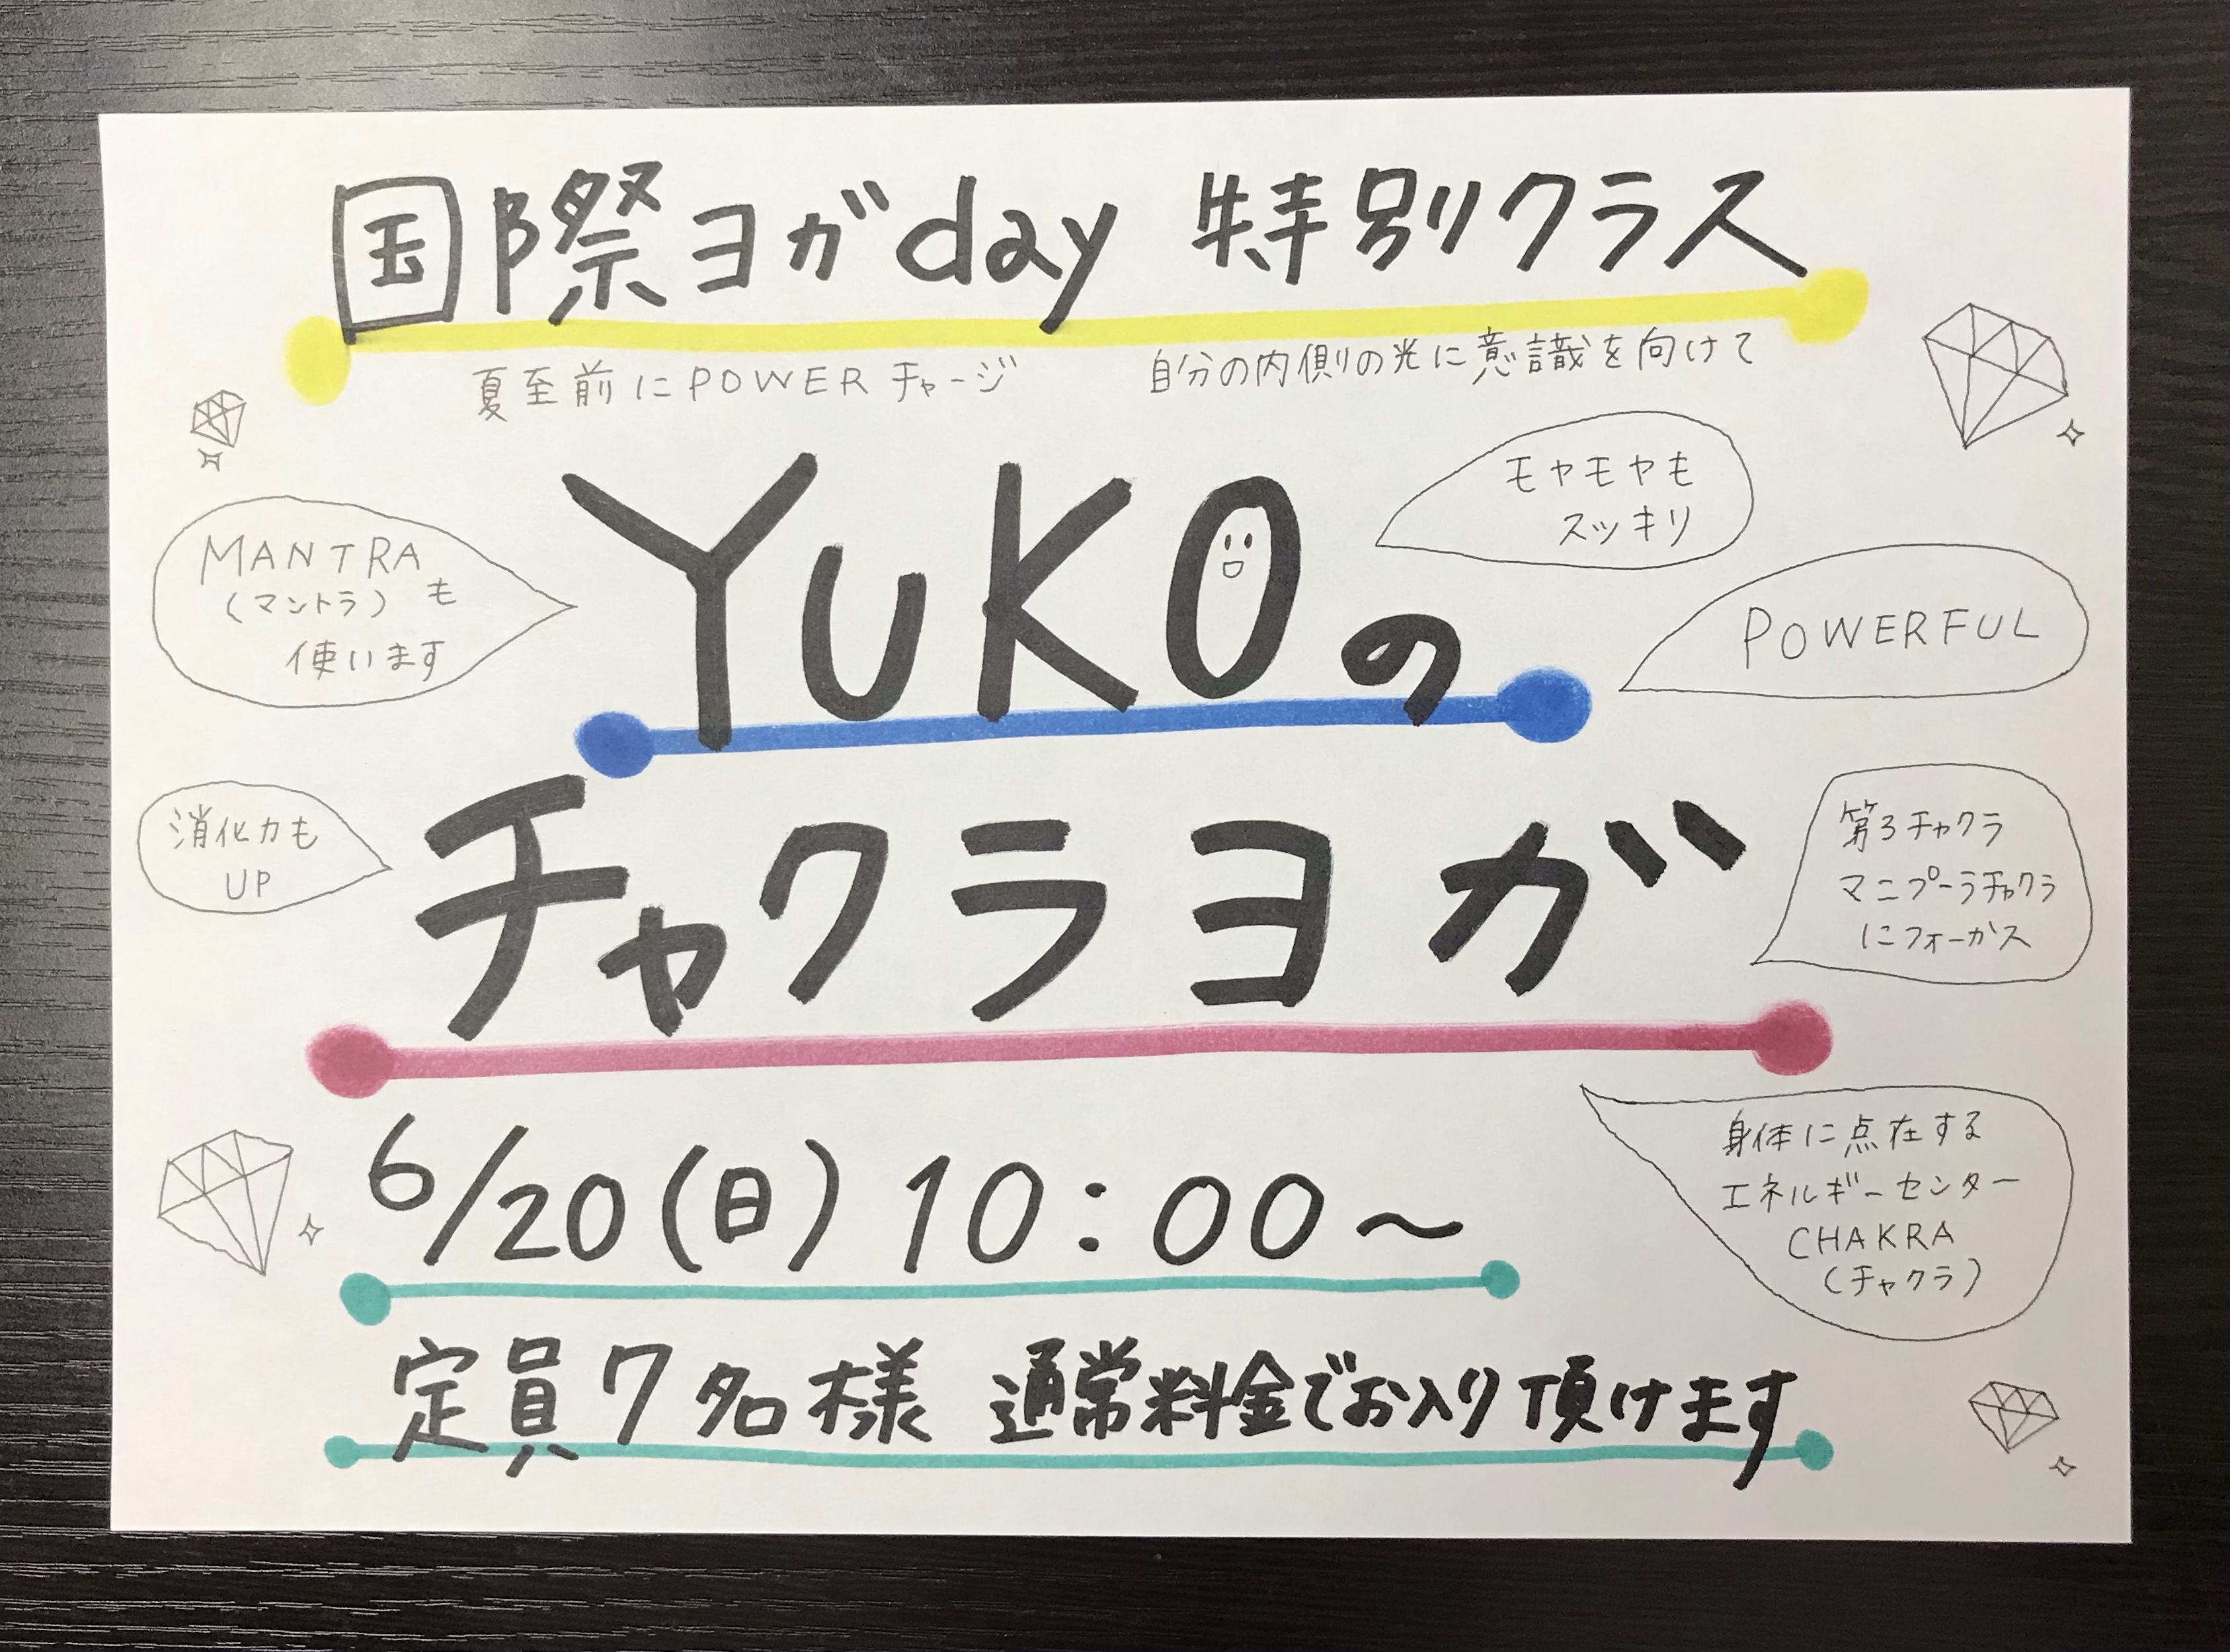 国際ヨガday 特別クラス
夏至前にPOWERチャージ
自分の内側の光に意識を向けて
YUKOの
モヤモヤも
スッキリ
MANTRA
(マントラ)も
使います
POWERFUL
チャクラヨガ
消化力も
UP
第3チャクラ
マニプーラチャクラ
にフォーカス
6/20(日) 10:00〜
身体に点在する
エネルギーセンター
CHAKRA
(チャクラ)
定員7名様 通常料金でお入り頂けます